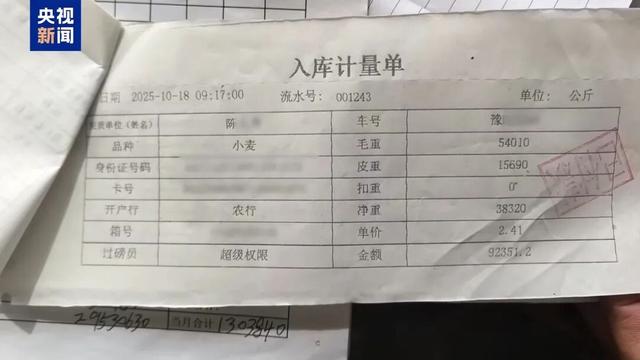 央视
新闻
入库计量单
日期 2025-10-18 09:17:00 流水号: 001243 单位: 公斤
单位(姓名) 陈 车号 豫
品种 小麦 毛重 54010
身份证号码 皮重 15690
卡号 扣重 0
开户行 农行 净重 38320
箱号 单价 2.41
过磅员 超级权限 金额 92351.2
29530630 当月合计 1303840